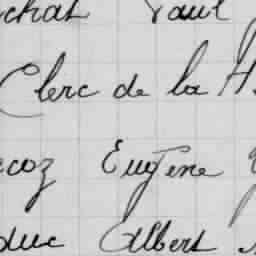 chat Paul
Clerc de la H
coz Eugène
duc Albert